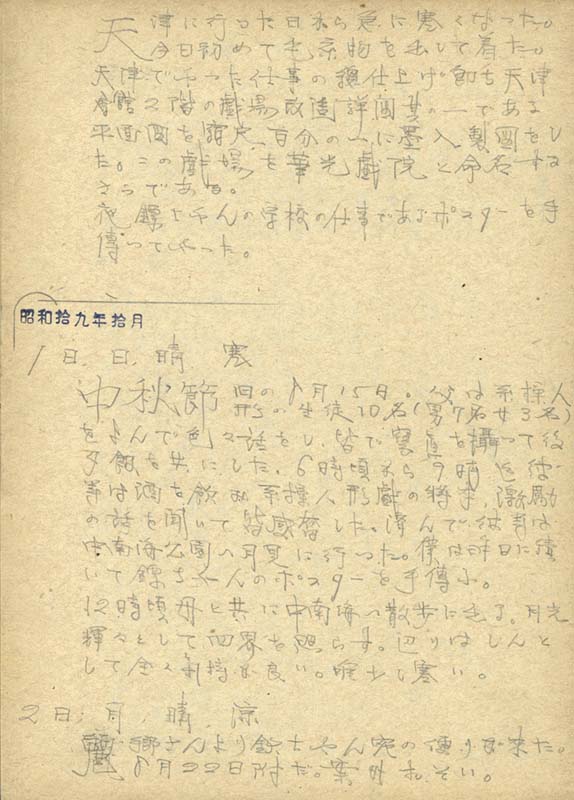 天津に行った日から急に寒くなった。
今日初めて毛糸物を出して着た。
天津でやった仕事の 仕上げ即ち天津
 2階の戯場改造詳図其の一である
平面図を縮尺百分の一に墨入製図をし
た。この戯場を華光戯院と命名する
さうである。
夜 ちやんの学校の仕事であるポスターを手
傳ってやった。
昭和拾九年拾月
1日,日,晴 寒
中秋節 旧の8月15日。父は糸操人
形の生徒10名(男7名女3名)
をよんで色々話をし,皆で寫真を撮って後
夕飯を共にした。6時頃から9時 彼
等は酒を飲み糸操人形戯の将来,激励
の話を聞いて皆感奮した。済んで彼等は
中南海公園へ月見に行った。僕は昨日に続
いて ちやんのポスターを手傳ふ。
12時頃母と共に中南海へ散歩に出る。月光
輝々として四界を照らす。辺りはしんと
して全く気持が良い。唯少し寒い。
2日,月,晴,涼
 郷さんより ちやん宛の便りが来た。
8月22日附だ。案外おそい。